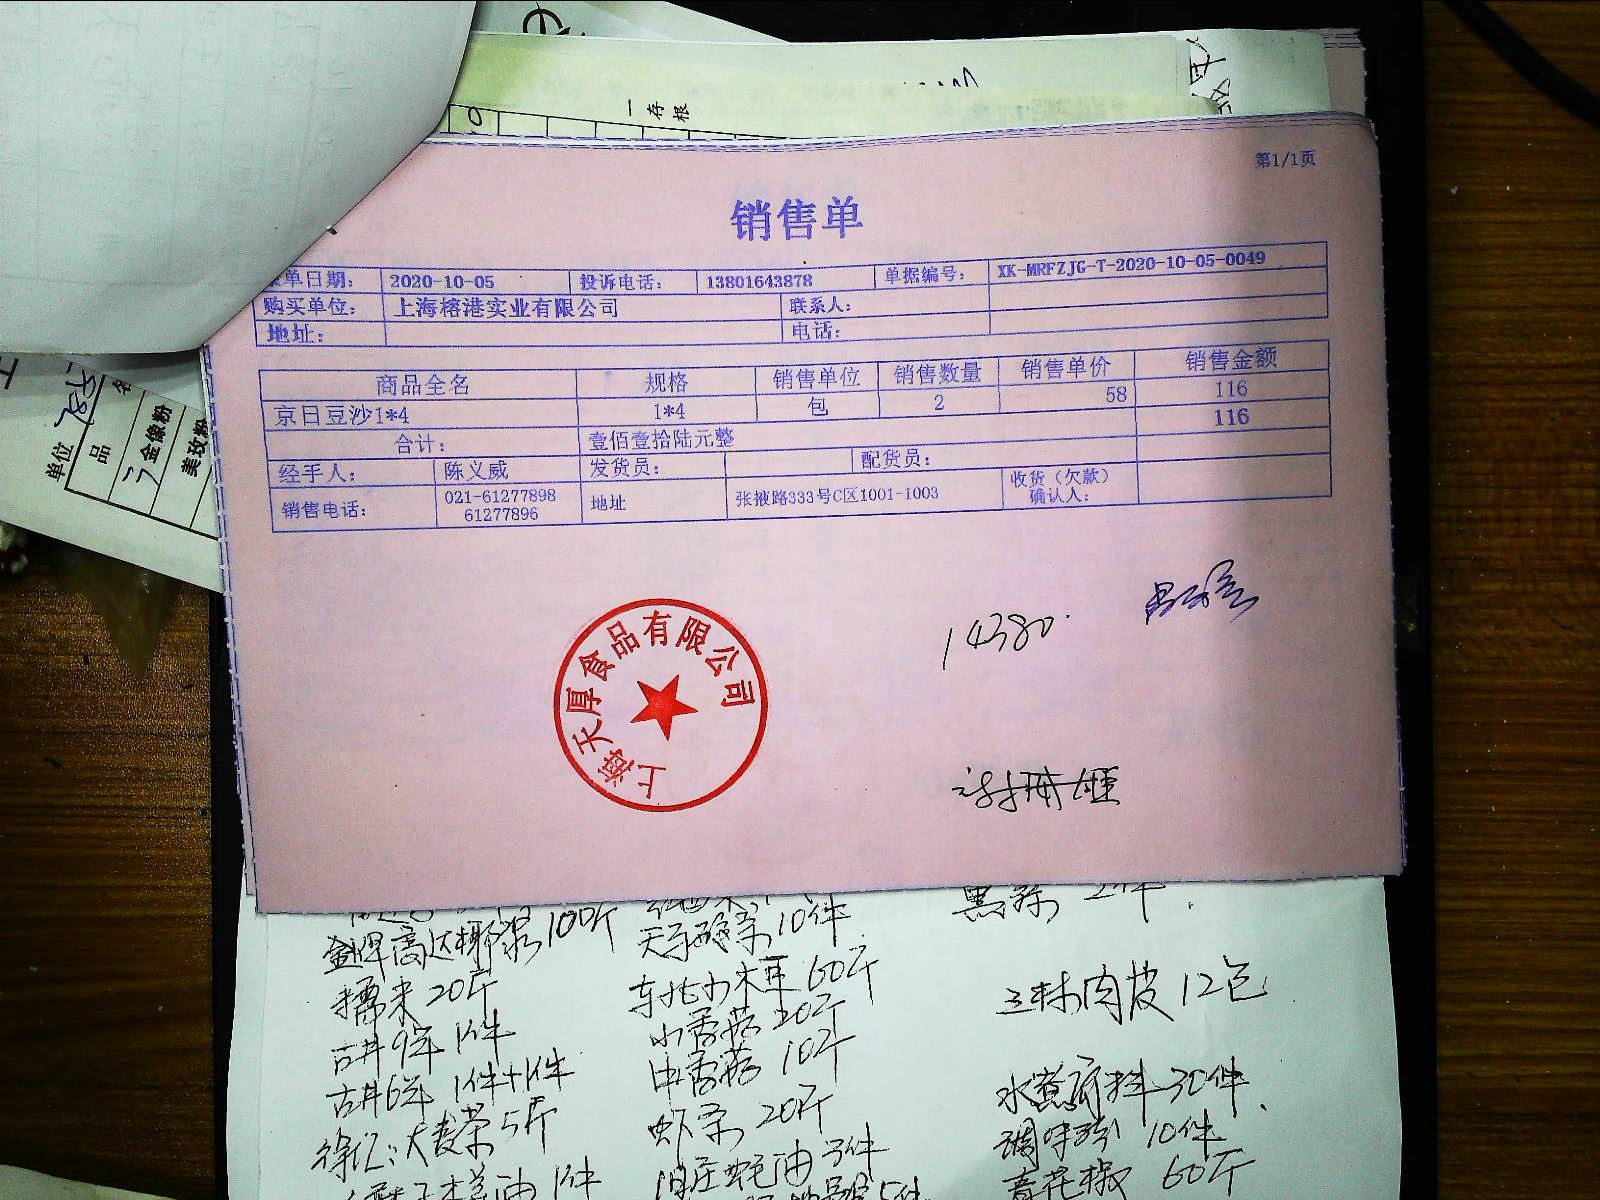 一存根
第1/1页
销售单
单日期: 2020-10-05 投诉电话: 13801643878 单据编号: XK-MRFZJG-T-2020-10-05-0049
购买单位: 上海榕港实业有限公司 联系人:
地址: 电话:
商品全名 规格 销售单位 销售数量 销售单价 销售金额
京日豆沙1*4 1*4 包 2 58 116
合计: 壹佰壹拾陆元整 116
经手人: 陈义威 发货员: 配货员:
销售电话: 021-61277898 61277896 地址 张掖路333号C区1001-1003 收货(欠款)确认人:
单位
品名
金像粉
美玫粉
14380
上海天厚食品有限公司
100斤 10件
糯米20斤 东北小木耳60斤 三林肉皮12包
古井9年1件 小香菇20斤
古井6年1件+1件 中香菇10斤 水煮底料30件
徐汇:大麦茶5斤 虾米20斤 调味 10件
油1件 旧庄蚝油3件 青花椒60斤